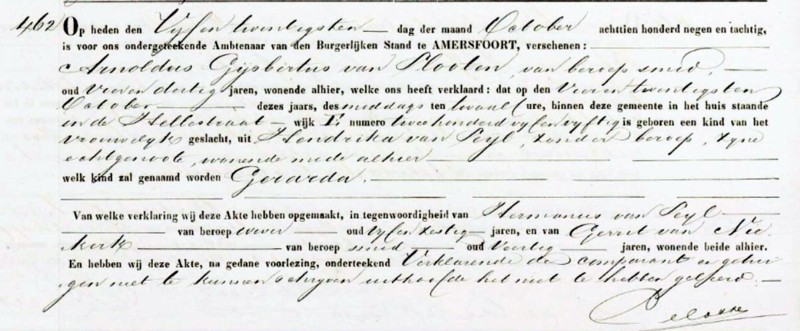 462 Op heden den Vijf en twintigsten dag der maand October achttien honderd negen en tachtig,
is voor ons ondergeteekende Ambtenaar van den Burgerlijken Stand te AMERSFOORT, verschenen:
Arnoldus Gijsbertus van Slooten, van beroep smid,
oud Vier en dertig jaren, wonende alhier, welke ons heeft verklaard: dat op den Vier en twintigsten
October dezes jaars, des middags ten twaalf ure, binnen deze gemeente in het huis staande
in de Hellestraat wijk E numero tweehonderd vijf en vijftig is geboren een kind van het
vrouwelijk geslacht, uit Hendrika van Zeijl, zonder beroep, zijne
echtgenoote, wonende mede alhier
welk kind zal genaamd worden Gerarda.
Van welke verklaring wij deze Akte hebben opgemaakt, in tegenwoordigheid van Hermanus van Zeijl
van beroep wever oud vijf en zestig jaren, en van Gerret van Nie
kerk van beroep smid oud Veertig jaren, wonende beide alhier.
En hebben wij deze Akte, na gedane voorlezing, onderteekend Verklarende de comparant en getui
gen niet te kunnen schrijven uithoofde het niet te hebben geleerd.